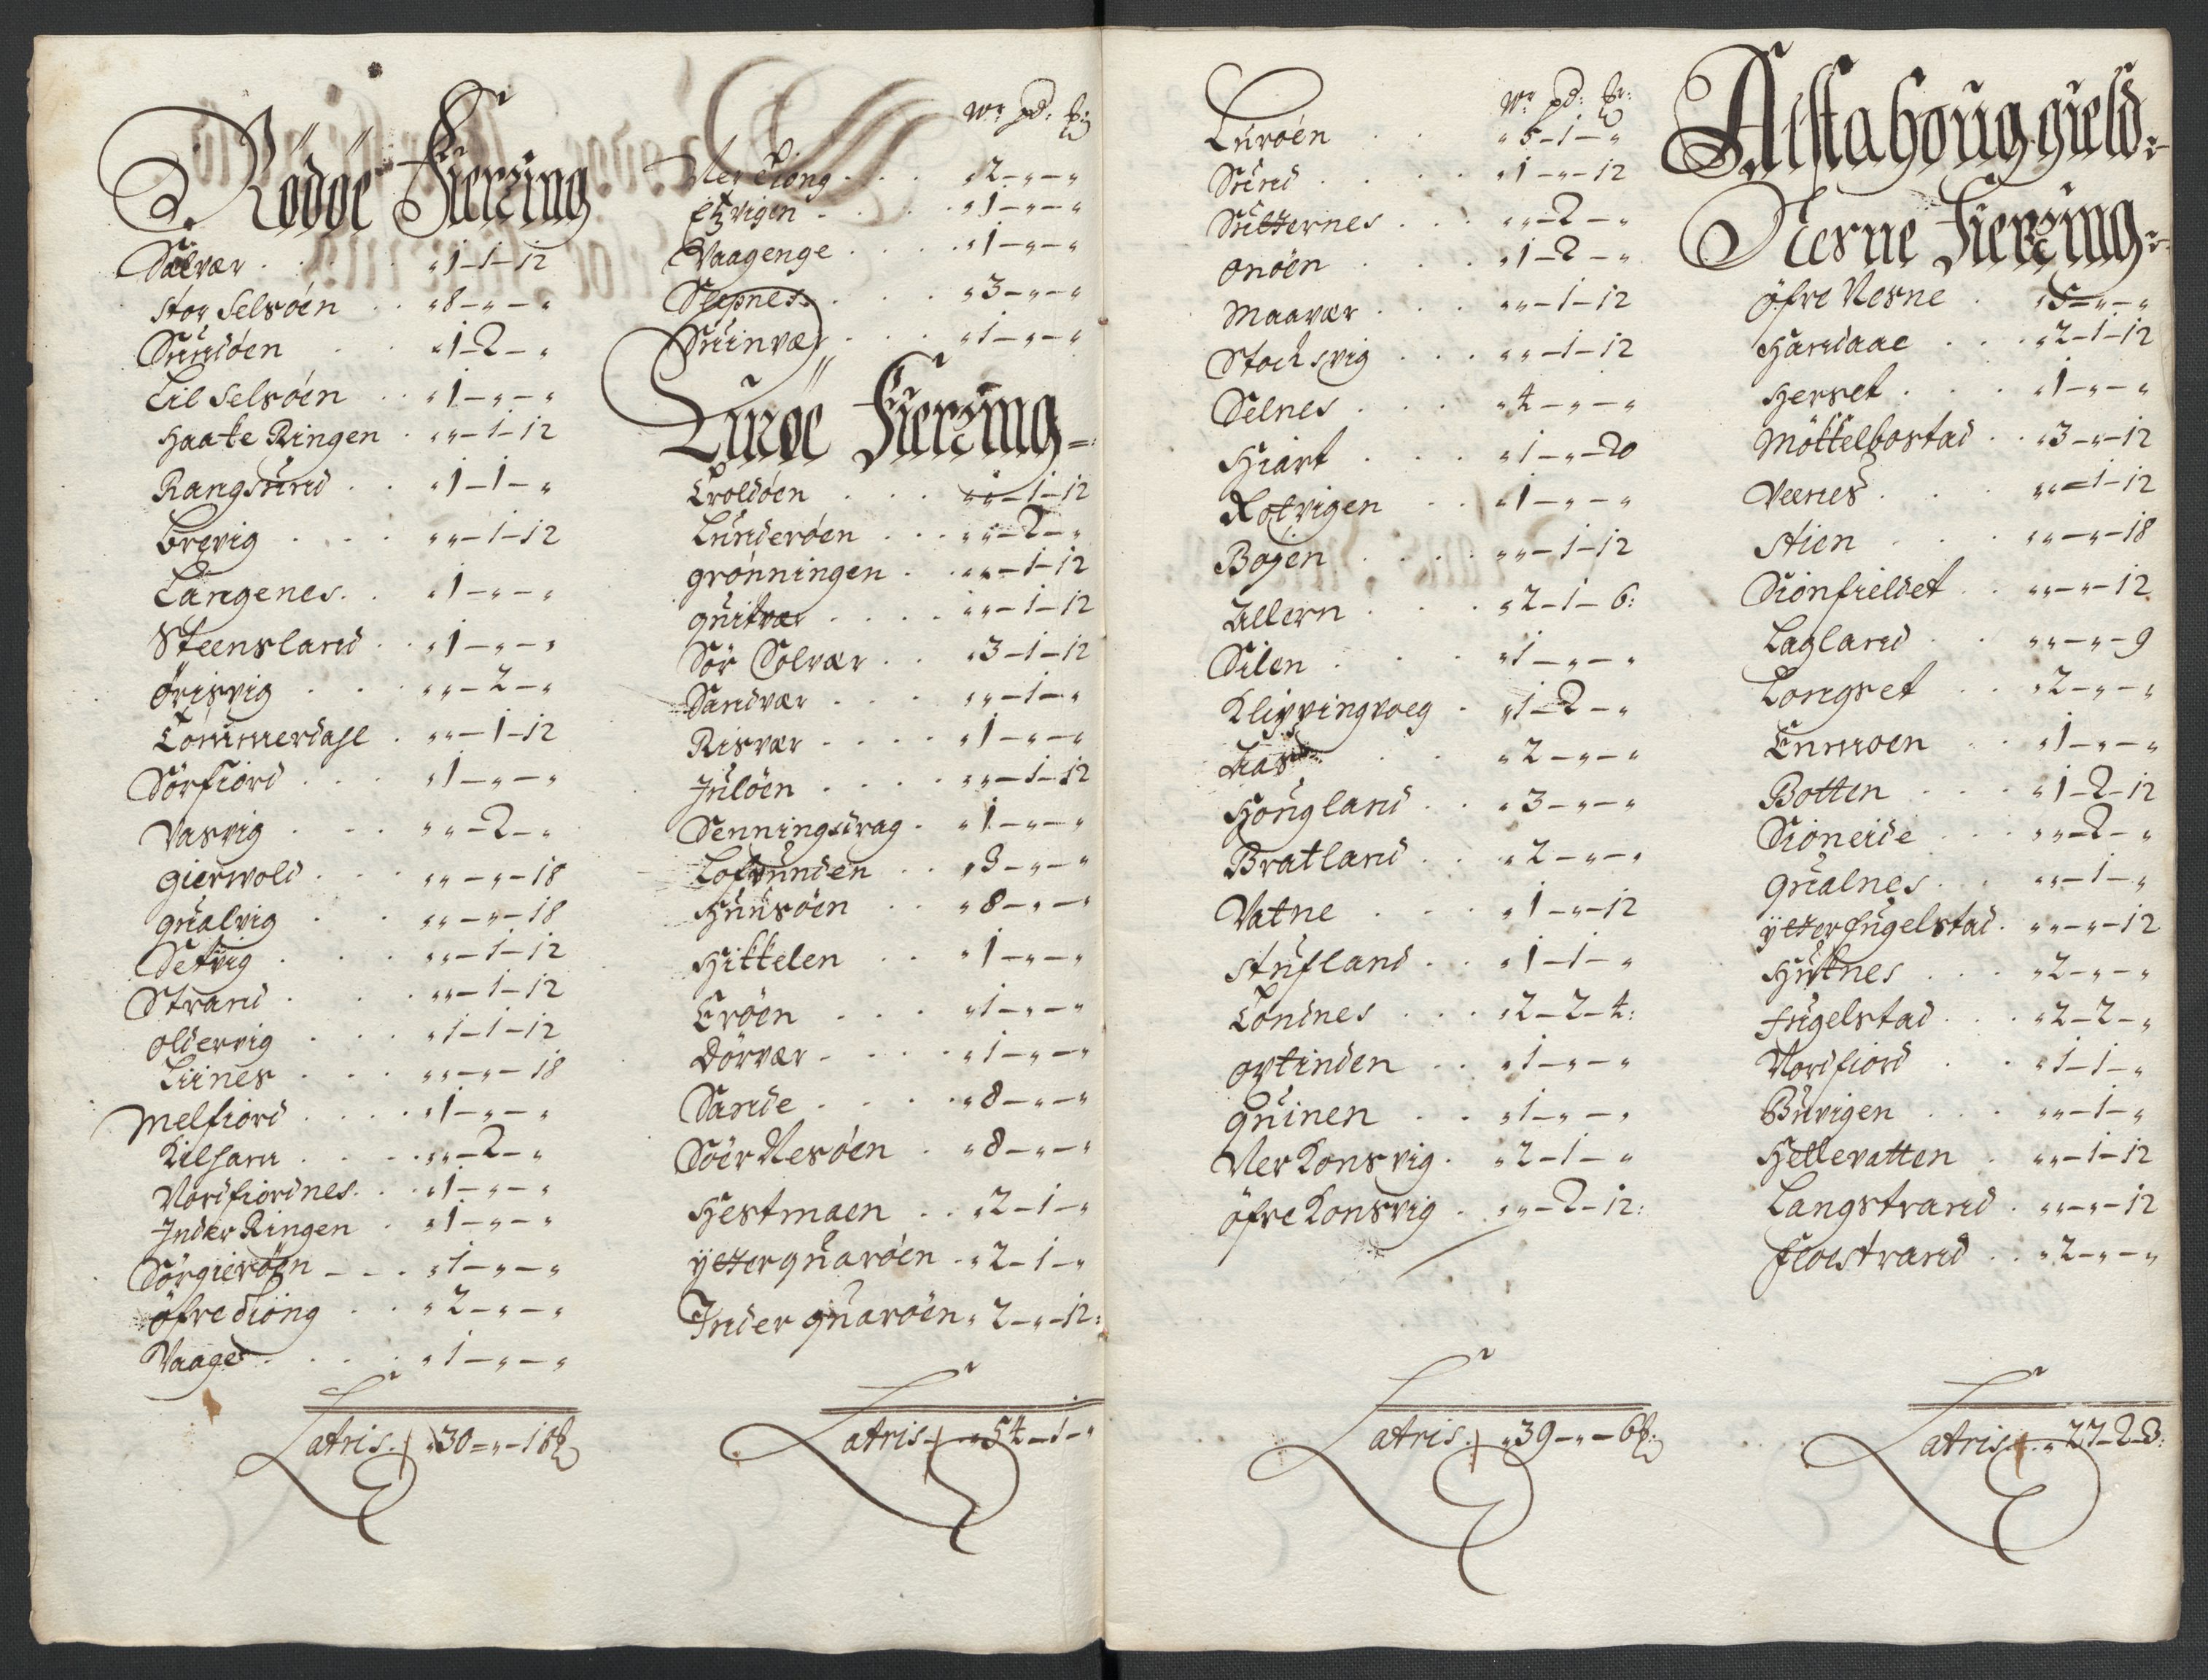 Rödöe Fierring
Sælvær . . . „1-1-12
Stor Selsöen . . „8-„-„
Sundöen . . „1-2-„
Lil Selsöen . . „1-„-„
Haate Ringen . „„-1-12
Rangsund . . „1-1-„
Brevig . . . „„-1-12
Langenes . . „1-„-„
Steensland . . „1-„-„
Örisvig . . . „„-2-„
Tömmerdahl . „„-1-12
Sörfiord . . . „1-„-„
Vasvig . . . „„-2-„
Gierwold . . . „„-„-18
Qualvig . . „„-„-18
Setvig . . . „„-1-12
Strand . . . „„-1-12
Oldervig . . . „1-1-12
Liines . . . „„-„-18
Melfiord . . . „1-„-„
Kilham . . . „„-2-„
Nordfiordnes . . „1-„-„
Inder Ringen . „1-„-„
Sörgieröen . . . „1-„-„
Öfre Diöng . . „2-„-„
Vaager . . . . „1-„-„
Latris . „30-„-18
Wr pd:
Ner Diöng . . . „2-„-„
Etzvigen . . . „1-„-„
Vaagenge . . . „1-„-„
Selpnes . . . „3-„-„
Suinvær . . . „1-„-„
Luröe Fierring
Troldöen . . . „„-1-12
Lunderöen . . . „„-2-„
Grönningen . . „„-1-12
Quitvær . . . . „„-1-12
Sör Solvær . . „3-1-12
Sandvær . . . „„-1-„
Risvær . . . . „1-„-„
Julöen . . . . „„-1-12
Senningsdrag . „1-„-„
Lofvunden . . „3-„-„
Huusöen . . „8-„-„
Hikkelen . . „1-„-„
Eröen . . . „1-„-„
Dörvær . . . . „1-„-„
Sande . . . . „8-„-„
Söer Nesöen . „8-„-„
Hestmaen . . „2-1-„
Ytterquaröen . „2-1-„
Inder quaröen „2-„-12:
Latris . „54-1-„
Wr pd:
Luröen . . „5-1-„
Sund . . . . „1-„-12
Sutternes . . . „„-2-„
Onöen . . . „1-2-„
Maavær . . . „„-1-12
Stochsvig . . . „„-1-12
Selnes . . . „4-„-„
Hiart . . . „1-„-20
Rotvigen . . „1-„-„
Bogen . . . . „„-1-12
Allern . . . „2-1-6:
Silen . . . „1-„-„
Klippingvoeg . „1-2-„
. . „2-„-„
Hougland . . „3-„-„
Bratland . . „2-„-„
Vatne . . . „1-„-12
Stufland . . „1-1-„
Tondnes . . . „2-2-4:
Ortinden . . „1-„-„
Quinen . . „1-„-„
Ner Konsvig . „2-1-„
Öfre Konsvig . „„-2-12:
Latris . „39-„-6
Alstahoug gield:
Nesne Fierring:
Öfre Nesne . „5-„-„
Handaae . . . „2-1-12
Herset . . . „1-„-„
Möttelbostad . . „3-„-12
Veenes . . . „„-1-12
Stien . . . „„-„-18
Sionfieldet . . „„-„-12
Lagland . . „„-„-9
Longset . . „2-„-„
Enmoen . . „1-„-„
Botten . . . „1-2-12
Sioneide . . . „„-2-„
Qualnes . . „„-1-„
Ytterfugelstad . „„-„-12
Husnes . . . „2-„-„
Fugelstad . . . „2-2-„
Nordfiord . . „1-1-„
Buvigen . . . „„-1-„
Hellevatten . „„-1-12
Langstrand . „„-„-12
Floestrand . . „2-„-„
Latris . „27-2-3: